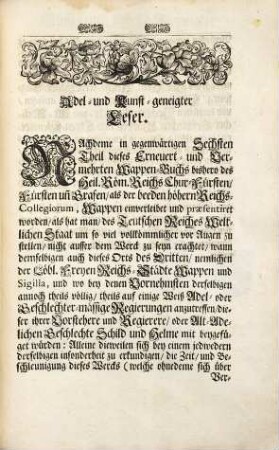 Adel- und Kunst-geneigter
Leser.
NAchdeme in gegenwärtigen Sechsten
Theil dieses Erneuert- und Ver-
mehrten Wappen-Buchs bishero des
Heil. Röm. Reichs Chur-Fürsten/
Fürsten uñ Grafen/ als der beeden höhern Reichs-
Collegiorum, Wappen einverleibet und præsentiret
worden/ als hat man/ des Teutschen Reiches Welt-
lichen Staat um so viel vollkömmlicher vor Augen zu
stellen/ nicht ausser dem Werck zu seyn erachtet/ wann
demselbigen auch dieses Orts des Dritten/ nemlichen
der Löbl. Freyen Reichs-Städte Wappen und
Sigilla, und wo bey denen Vornehmsten derselbigen
annoch theils völlig/ theils auf einige Weiß Adel- oder
Geschlechter-mässige Regierungen anzutreffen/ die-
ser ihrer Vorstehere und Regierere/ oder Alt-Ade-
lichen Geschlechte Schild und Helme mit beygefü-
get würden: Alleine dieweilen sich bey einem jedwedern
derselbigen insonderheit zu erkundigen/ die Zeit/ und Be-
schleunigung dieses Wercks (welche ohnedeme sich über
Ver-